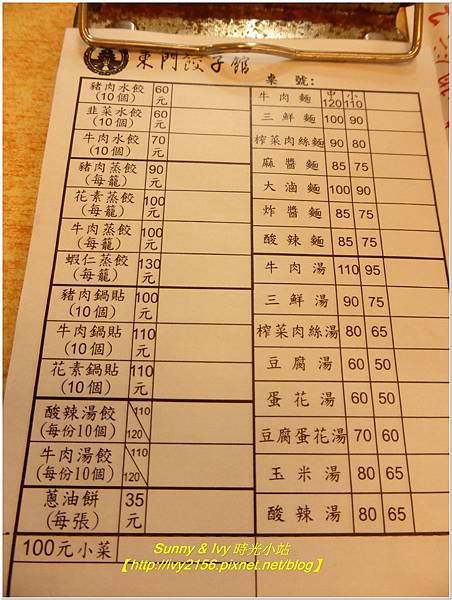 東門餃子館
桌號:
豬肉水餃
(10個)
60
元
韭菜水餃
(10個)
60
元
牛肉水餃
(10個)
70
元
豬肉蒸餃
(每籠)
90
元
花素蒸餃
(每籠)
100
元
牛肉蒸餃
(每籠)
100
元
蝦仁蒸餃
(每籠)
130
元
豬肉鍋貼
(10個)
100
元
牛肉鍋貼
(10個)
110
元
花素鍋貼
(10個)
110
元
酸辣湯餃
(每份10個)
110
120
牛肉湯餃
(每份10個)
110
120
蔥油餅
(每張)
35
元
100元小菜
中 小
牛肉麵 120 110
三鮮麵 100 90
榨菜肉絲麵 90 80
麻醬麵 85 75
大滷麵 100 90
炸醬麵 85 75
酸辣麵 85 75
牛肉湯 110 95
三鮮湯 90 75
榨菜肉絲湯 80 65
豆腐湯 60 50
蛋花湯 60 50
豆腐蛋花湯 70 60
玉米湯 80 65
酸辣湯 80 65
Sunny & Ivy 時光小站
【http://ivy2156.pixnet.net/blog】